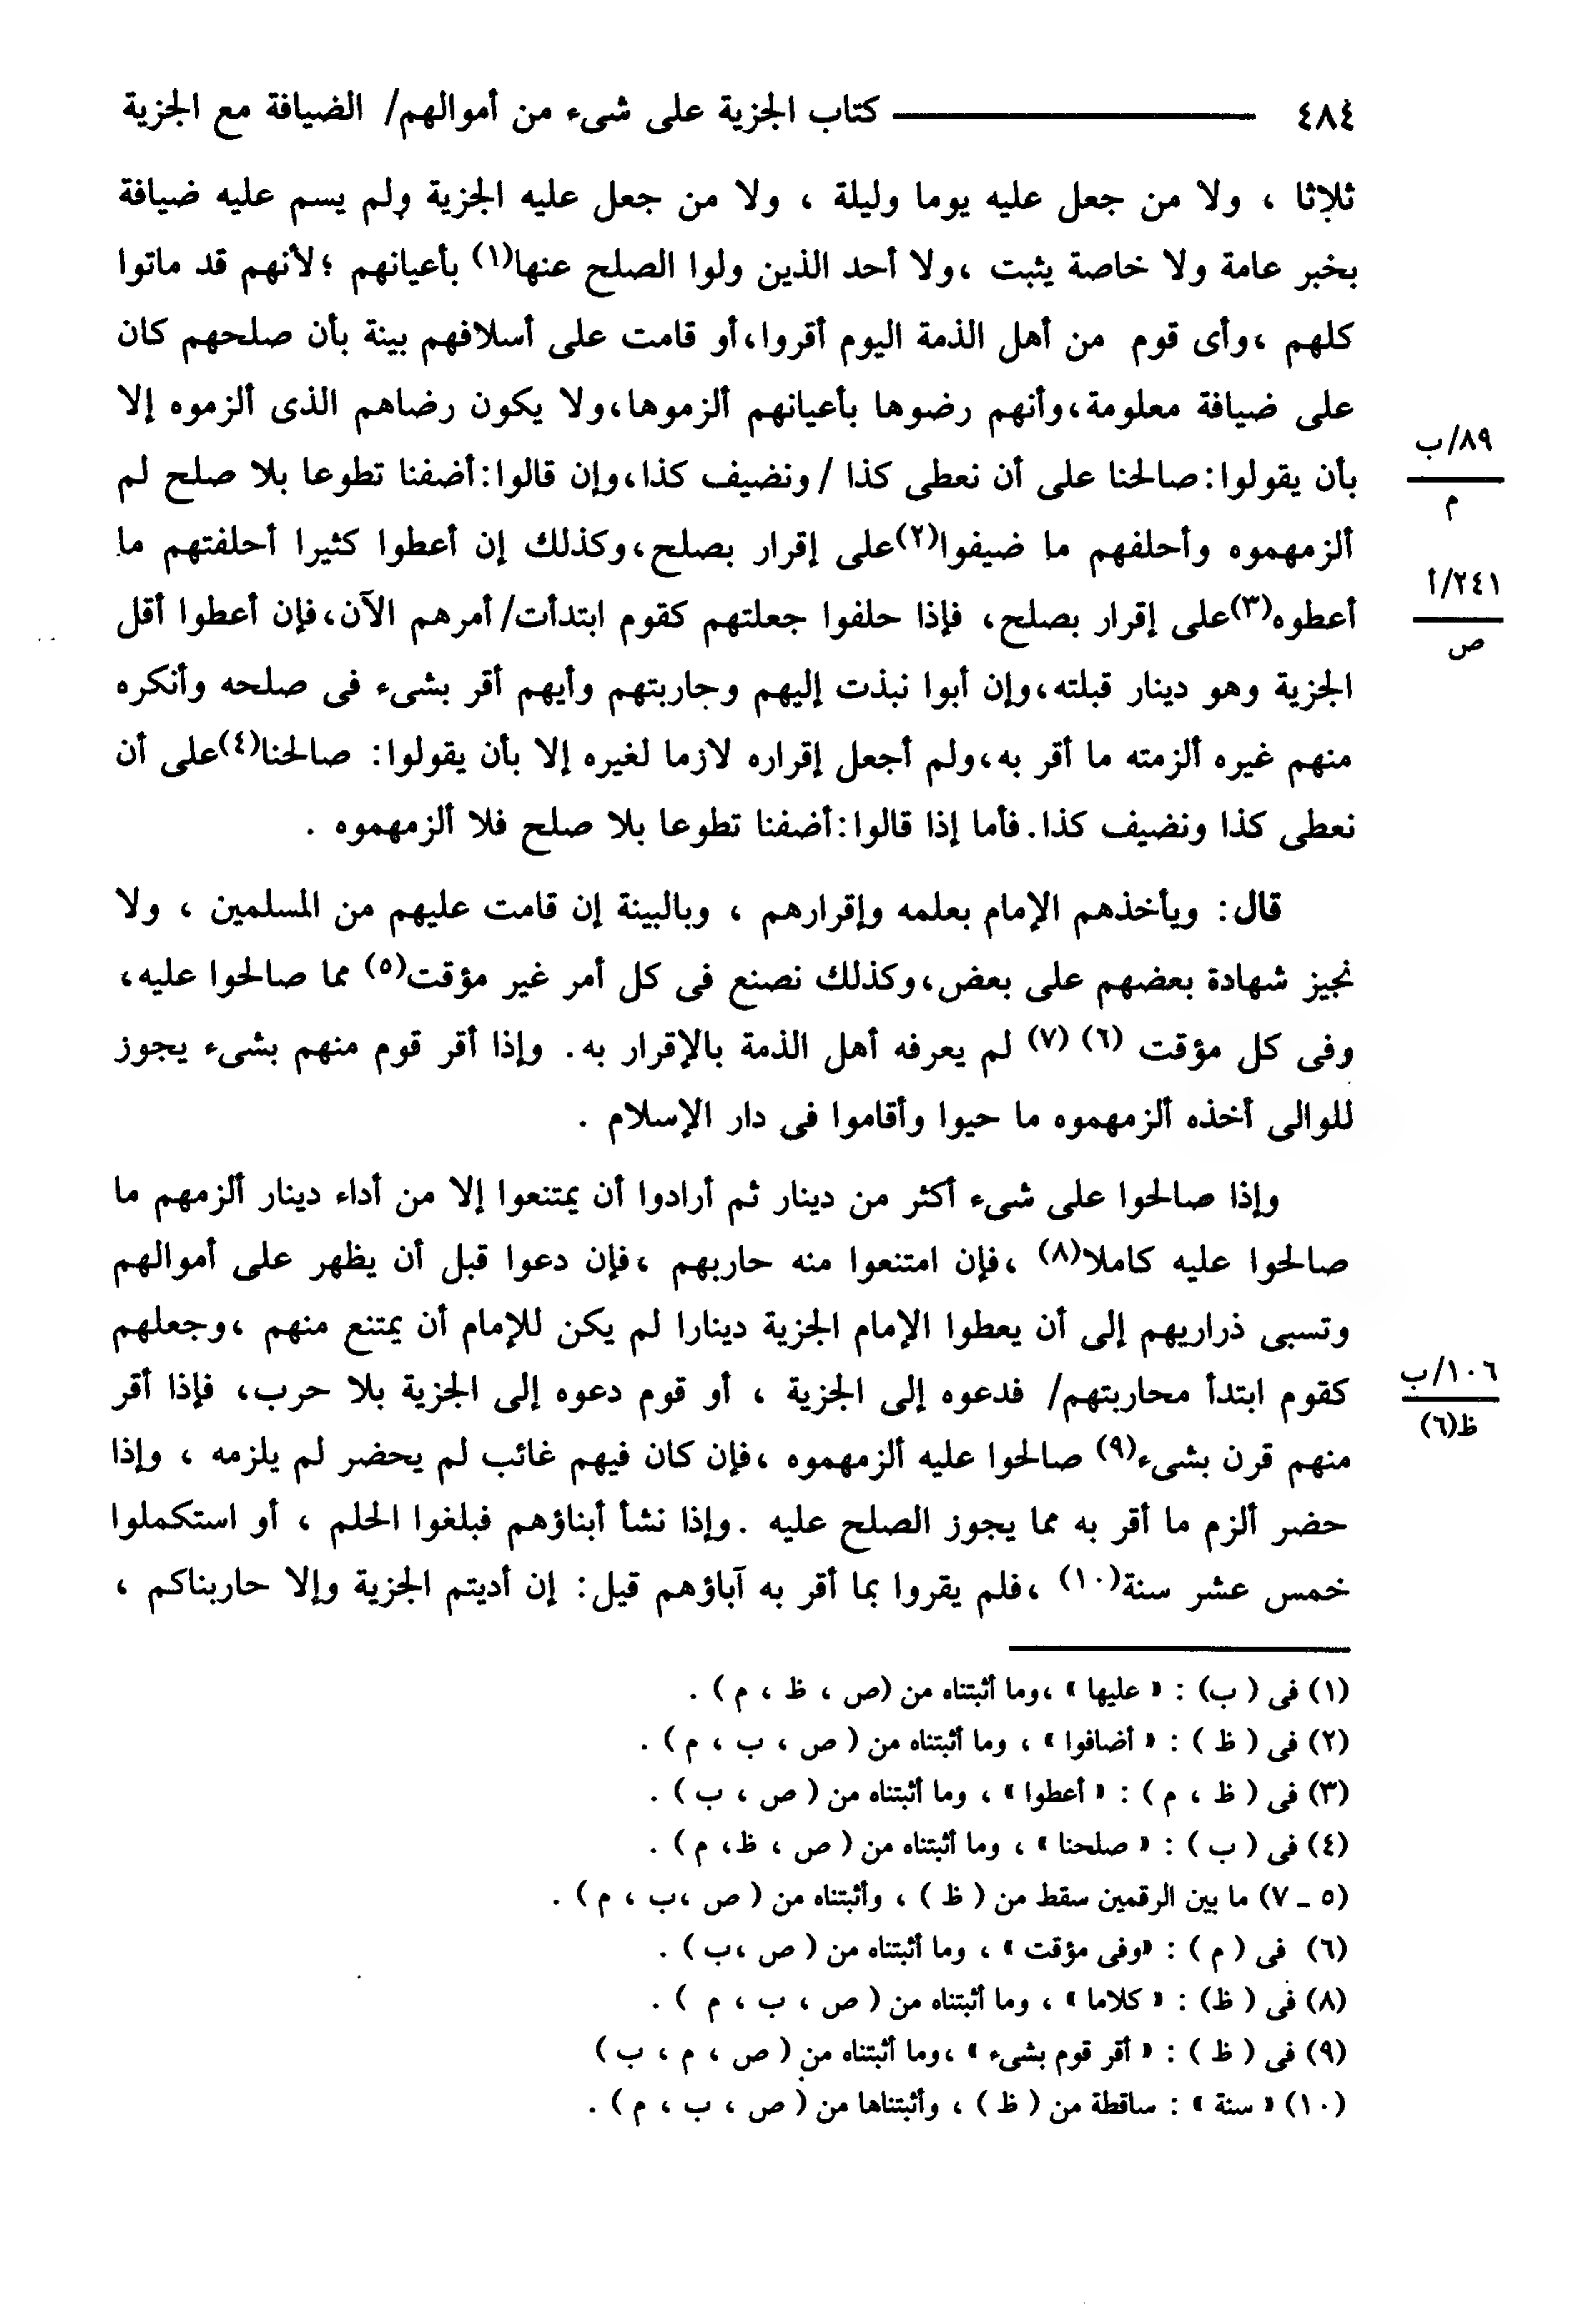 ٤٨٤ كتاب الجزية على شىء من أموالهم/ الضيافة مع الجزية
ثلاثا ، ولا من جعل عليه يوما وليلة ، ولا من جعل عليه الجزية ولم يسم عليه ضيافة
بخبر عامة ولا خاصة يثبت ،ولا أحد الذين ولوا الصلح عنها(١) بأعيانهم ؛لأنهم قد ماتوا
كلهم ،وأى قوم من أهل الذمة اليوم أقروا،أو قامت على أسلافهم بينة بأن صلحهم كان
على ضيافة معلومة،وأنهم رضوها بأعيانهم ألزموها،ولا يكون رضاهم الذى ألزموه إلا
٨٩/ب
بأن يقولوا:صالحنا على أن نعطى كذا /ونضيف كذا،وإن قالوا:أضفنا تطوعا بلا صلح لم
م
ألزمهموه وأحلفهم ما ضيفوا(٢)على إقرار بصلح،وكذلك إن أعطوا كثيرا أحلفتهم ما
٢٤١/أ
أعطوه(٣)على إقرار بصلح، فإذا حلفوا جعلتهم كقوم ابتدأت/أمرهم الآن،فإن أعطوا أقل
ص
الجزية وهو دينار قبلته،وإن أبوا نبذت إليهم وحاربتهم وأيهم أقر بشىء فى صلحه وأنكره
منهم غيره ألزمته ما أقر به،ولم أجعل إقراره لازما لغيره إلا بأن يقولوا: صالحنا(٤)على أن
نعطى كذا ونضيف كذا.فأما إذا قالوا:أضفنا تطوعا بلا صلح فلا ألزمهموه .
قال: ويأخذهم الإمام بعلمه وإقرارهم ، وبالبينة إن قامت عليهم من المسلمين ، ولا
نجيز شهادة بعضهم على بعض،وكذلك نصنع فى كل أمر غير مؤقت(٥) مما صالحوا عليه،
وفى كل مؤقت (٦) (٧) لم يعرفه أهل الذمة بالإقرار به. وإذا أقر قوم منهم بشىء يجوز
للوالى أخذه ألزمهموه ما حيوا وأقاموا فى دار الإسلام .
وإذا صالحوا على شىء أكثر من دينار ثم أرادوا أن يمتنعوا إلا من أداء دينار ألزمهم ما
صالحوا عليه كاملا(٨) ،فإن امتنعوا منه حاربهم ،فإن دعوا قبل أن يظهر على أموالهم
وتسبى ذراريهم إلى أن يعطوا الإمام الجزية دينارا لم يكن للإمام أن يمتنع منهم ،وجعلهم
١٠٦/ب
كقوم ابتدأ محاربتهم/ فدعوه إلى الجزية ، أو قوم دعوه إلى الجزية بلا حرب، فإذا أقر
ظ(٦)
منهم قرن بشىء(٩) صالحوا عليه ألزمهموه ،فإن كان فيهم غائب لم يحضر لم يلزمه ، وإذا
حضر ألزم ما أقر به مما يجوز الصلح عليه .وإذا نشأ أبناؤهم فبلغوا الحلم ، أو استكملوا
خمس عشر سنة(١٠) ،فلم يقروا بما أقر به آباؤهم قيل: إن أديتم الجزية وإلا حاربناكم ،
(١) فى ( ب) : « عليها » ،وما أثبتناه من (ص ، ظ ، م ) .
(٢) فى ( ظ ) : « أضافوا » ، وما أثبتناه من ( ص ، ب ، م ) .
(٣) فى ( ظ ، م ) : « أعطوا » ، وما أثبتناه من ( ص ، ب ) .
(٤) فى ( ب ) : « صلحنا » ، وما أثبتناه من ( ص ، ظ، م ) .
(٥ ـ ٧) ما بين الرقمين سقط من ( ظ ) ، وأثبتناه من ( ص ،ب ، م ) .
(٦) فى ( م ) : «وفى مؤقت » ، وما أثبتناه من ( ص ،ب ) .
(٨) فى ( ظ) : « كلاما » ، وما أثبتناه من ( ص ، ب ، م ) .
(٩) فى ( ظ ) : « أقر قوم بشىء » ،وما أثبتناه من ( ص ، م ، ب )
(١٠) « سنة » : ساقطة من ( ظ ) ، وأثبتناها من ( ص ، ب ، م ) .